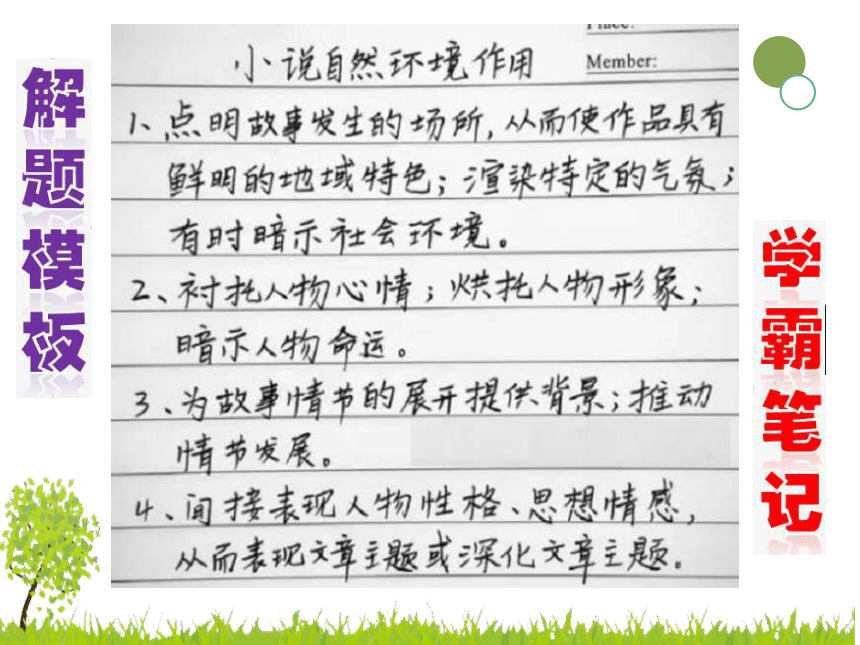 解题模板
Member:
小说自然环境作用
1、点明故事发生的场所,从而使作品具有
鲜明的地域特色;渲染特定的气氛;
有时暗示社会环境。
2、衬托人物心情;烘托人物形象;
暗示人物命运。
3、为故事情节的展开提供背景;推动
情节发展。
4、间接表现人物性格、思想情感,
从而表现文章主题或深化文章主题。
学霸笔记